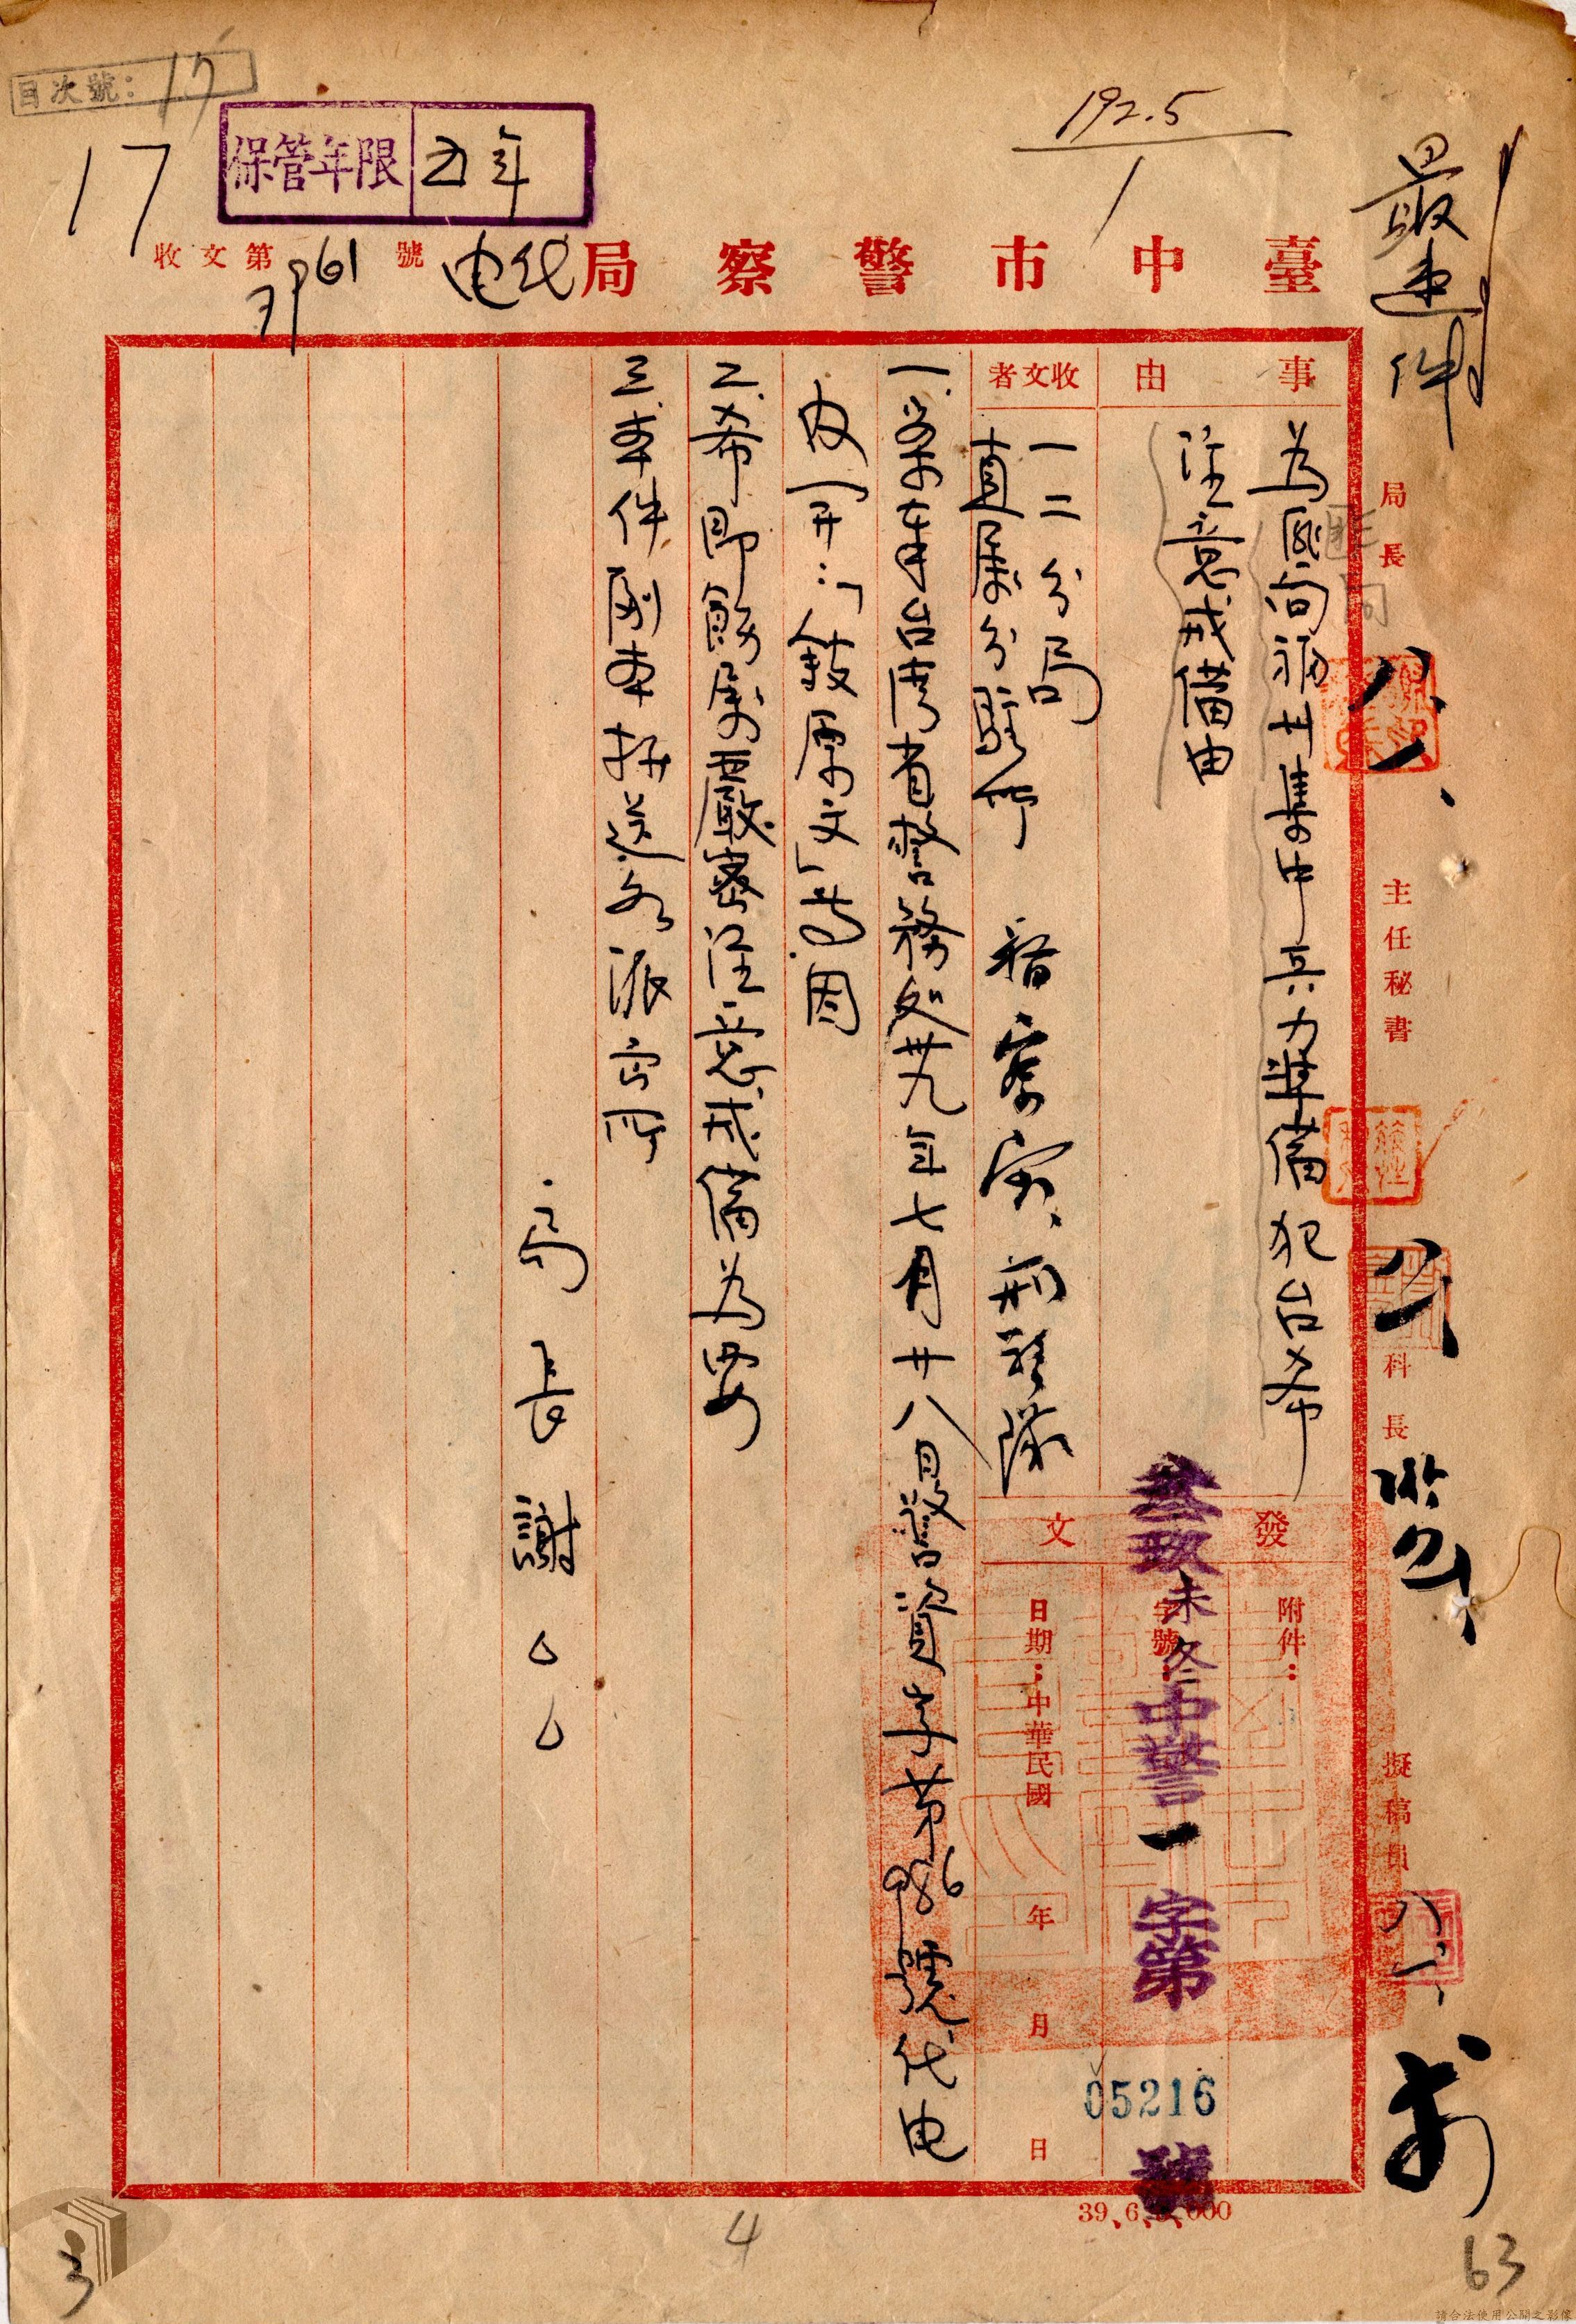 目次號：17
17
保管年限 五年
192.5
1
最速件
臺中市警察局 电代
收文第 961 號
事由
為匪向福廿集中兵力準備犯台希
注意戒備由
收文者
一二分局
直屬分駐所 督察室、刑警隊
發文
附件：
字號：
叁玖未冬中警一字第
05216
號
日期：中華民國 年 月 日
一、案奉台灣省警務处卅九年七月廿八日醙警資字第986號代电
内開：「錄原文」等因
二、希即飭屬嚴密注意戒備為要
三、本件副本抄送各派出所
局長謝〇〇
局長
匪向
八、一、
主任秘書
八、
科長
擬稿員
八、一、
39.6.5.000
4
3
63
請合法使用公開之影像